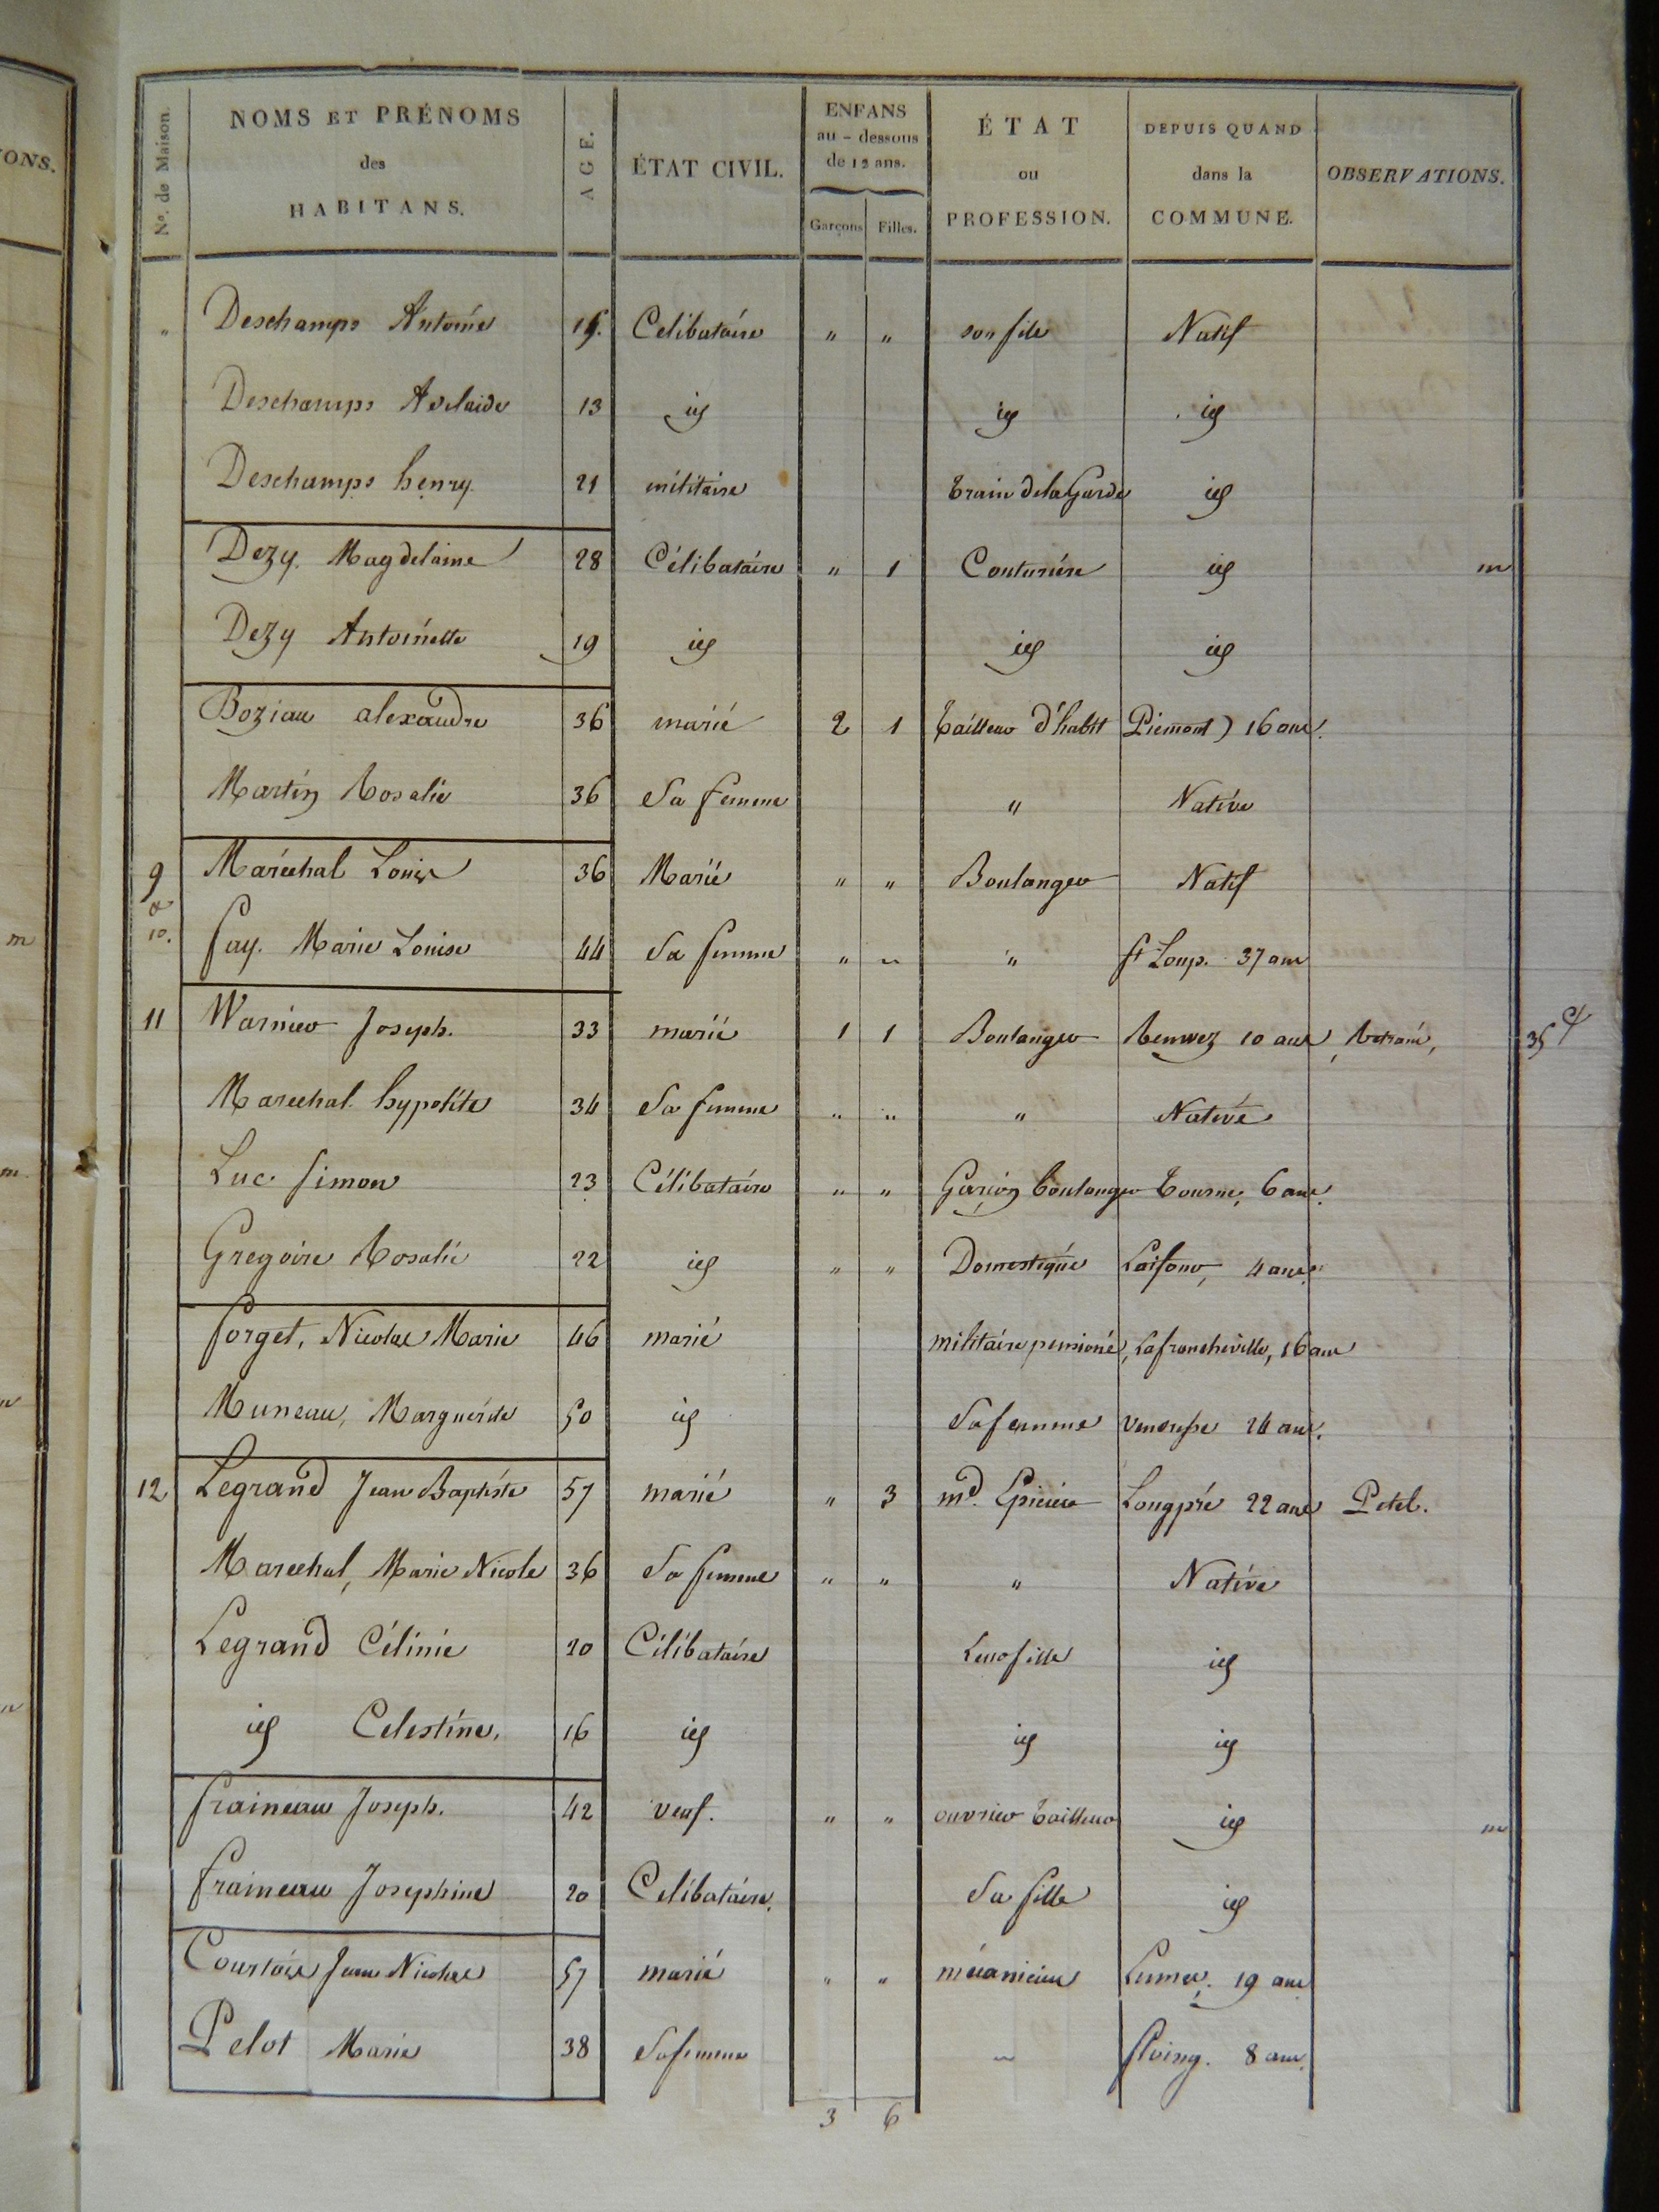 ONS.
N.º de Maison.
NOMS ET PRÉNOMS
des
HABITANS.
AGE.
ÉTAT CIVIL.
ENFANS
au-dessous
de 12 ans.
Garçons Filles.
ÉTAT
ou
PROFESSION.
DEPUIS QUAND
dans la
COMMUNE.
OBSERVATIONS.
" Deschamps Antoine Celibataire " " son fils Natif
Deschamps Adelaide 13 id id id
Deschamps henry 21 militaire train de la Garde id
Dezy Magdelaine 28 Célibataire " 1 Couturière id m
Dezy Antoinette 19 id id id
Boziau alexandre 36 marié 2 1 tailleur d'habit Piemont) 16 ans.
Martin Rosalie 36 Sa femme " Native
9 Maréchal Louis 36 Marié " " Boulanger Natif
& 10. fay. Marie Louise 44 Sa femme " " " St Loup. 37 ans
11 Warnier Joseph. 33 marié 1 1 Boulanger Renwez 10 ans 35
Marechal hypolite 34 Sa femme " " " Native
Luc Simon 23 Célibataire " " Garçon boulanger tourne, 6 ans.
Gregoire Rosalie 22 id " " Domestique Laifour, 4 ans
forget, Nicolas Marie 46 marié militaire pensioné, Lafrancheville, 16 ans
Muneau, Marguerite 50 id Sa femme vendresse 24 ans.
12 Legrand Jean Baptiste 57 marié " 3 md. Epicier Longpré 22 ans Petel.
Marechal, Marie Nicole 36 Sa femme " " " Native
Legrand Célinie 20 Célibataire Leur fille id
id Celestine. 16 id id id
fraineau Joseph. 42 veuf. " " ouvrier tailleur id m
fraineau Josephine 20 Celibataire. Sa fille id
Courtois Jean Nicolas 57 marié " " mécanicien Lumes. 19 ans
Pelot Marie 38 Sa femme " floing. 8 ans.
3 6